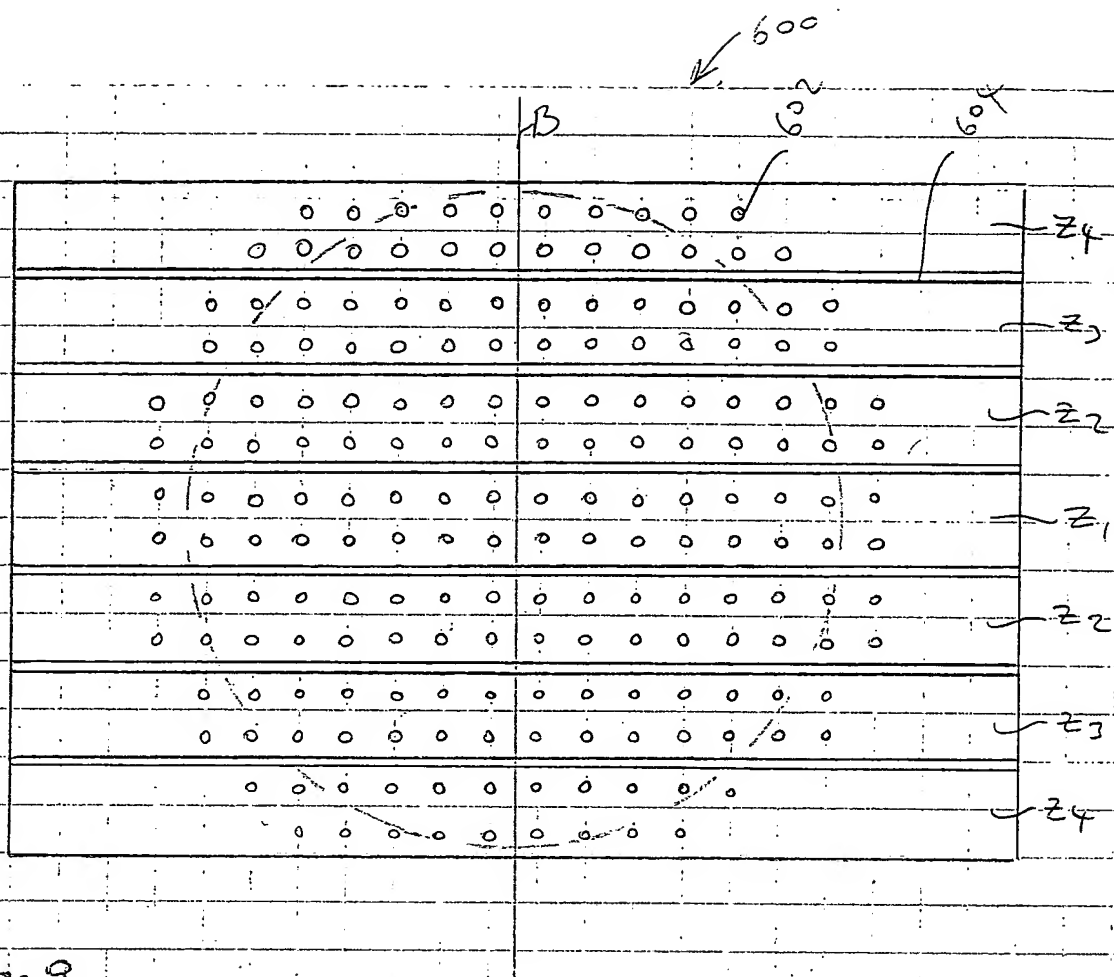 600
B
602
604
Z4
Z3
Z2
Z1
Z2
Z3
Z4